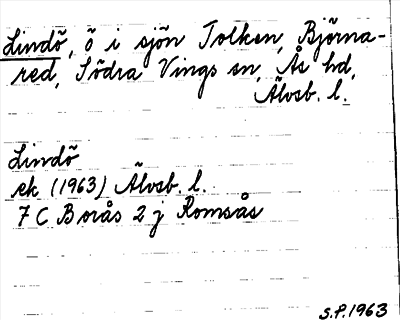 Lindö, ö i sjön Tolken, Björna-
red, Södra Vings sn, Ås hd,
Älvsb. l.
Lindö
ek (1963) Älvsb. l.
7 C Borås 2 j Romsås
S.P. 1963